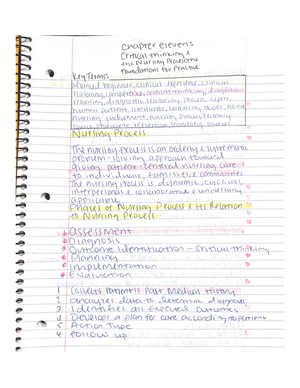 Chapter eleven:
Critical thinking &
the Nursing Process
Foundations for Practice
Key Terms:
advanced beginner, clinical experience, clinical
reasoning, competence, critical thinking,
reasoning, diagnostic reasoning, proven expert,
human patient simulators, learning styles, novice
nursing judgement, nursing process, primary
source, proficient, secondary sources
Nursing Process
The nursing process is an orderly & systematic
problem-solving approach toward
giving patient-centered nursing care
to individuals, families, & communities
The nursing process is dynamic, cyclical,
interpersonal & collaborative & universally
applicable
Phases of Nursing Process & its Relation
to Nursing Process
Assessment
Diagnosis
Outcome Identification - Critical thinking
Planning
Implementation
Evaluation
1 Collects Patient's Past Medical History
2 analyzes data to determine diagnosis
3 Identifies all Expected Outcomes
4 Develops a plan for care according to patient
5 Action Type
6 Follow up